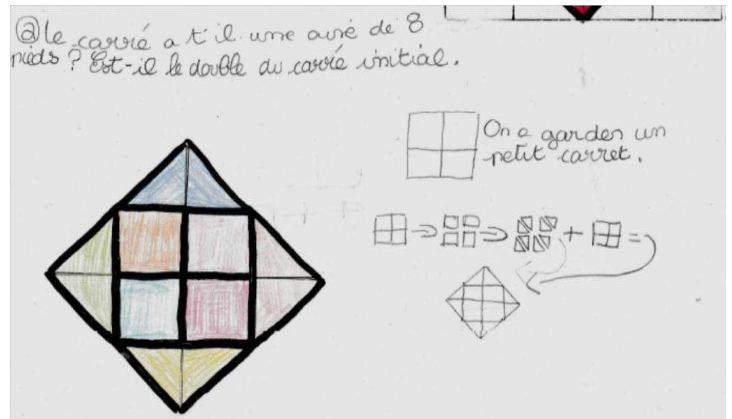 ⓐ le carré a t'il une aire de 8
pieds ? Est-il le double du carré initial.
On a garder un
petit carret.